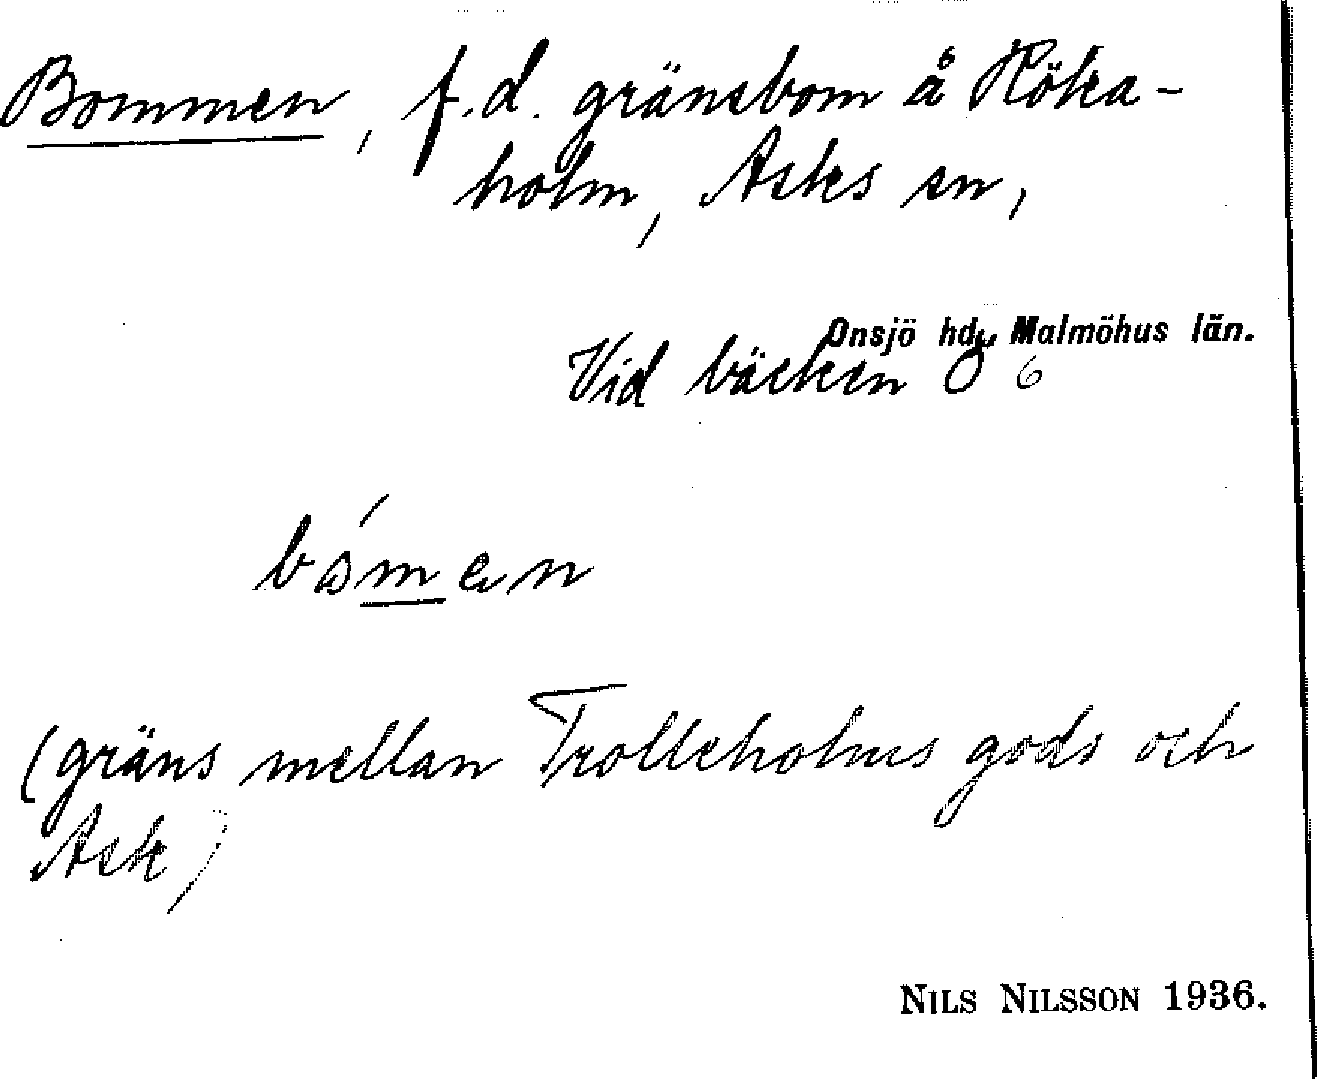 Bommen, f.d. gränsbom å Röka-
holm, Asks sn,
Onsjö hd, Malmöhus län.
Vid bäcken g 6
(gräns mellan Trolleholms gods och
Ask)
NILS NILSSON 1936.